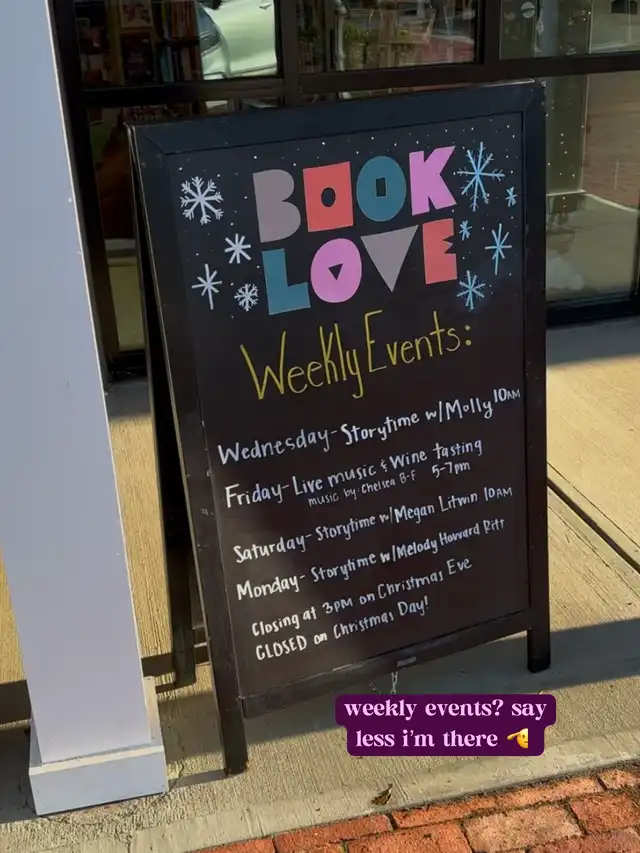 BOOK
LOVE
Weekly Events:
Wednesday- Storytime w/Molly 10AM
Friday- Live music & Wine tasting
music by: Chelsea B-F 5-7pm
Saturday- Storytime w/Megan Litwin 10AM
Monday- Storytime w/Melody Howard Ritt
Closing at 3PM on Christmas Eve
CLOSED on Christmas Day!
weekly events? say
less i'm there 🫡